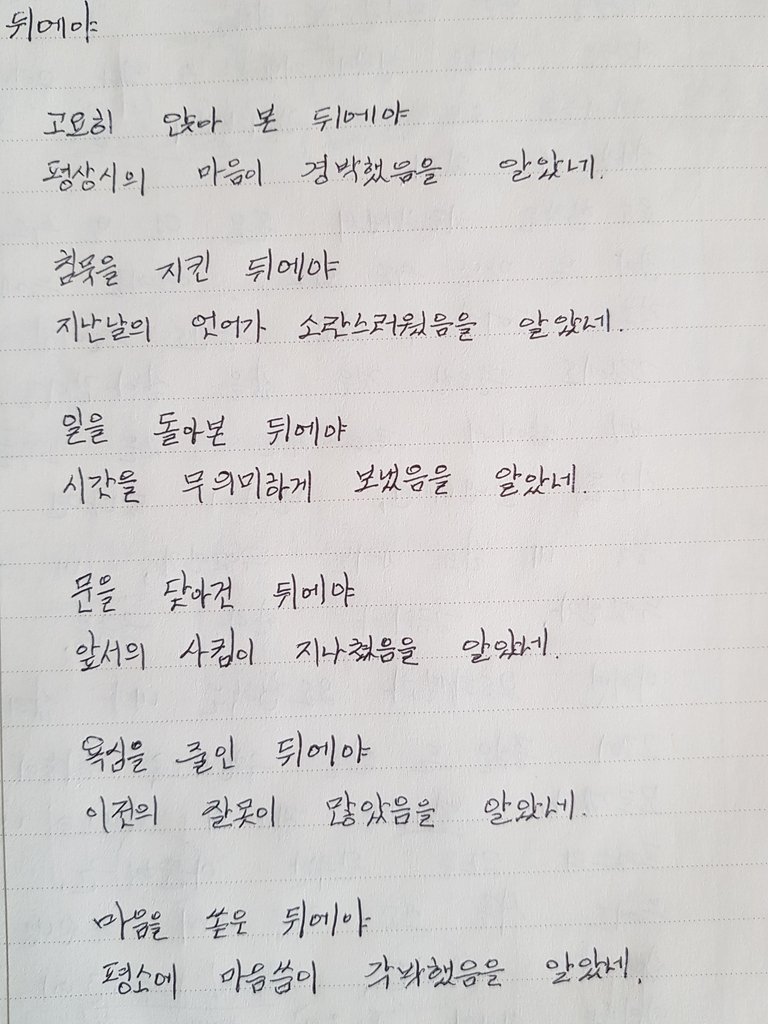 뒤에야
고요히 앉아 본 뒤에야
평상시의 마음이 경박했음을 알았네.
침묵을 지킨 뒤에야
지난날의 언어가 소란스러웠음을 알았네.
일을 돌아본 뒤에야
시간을 무의미하게 보냈음을 알았네.
문을 닫아건 뒤에야
앞서의 사귐이 지나쳤음을 알았네.
욕심을 줄인 뒤에야
이전의 잘못이 많았음을 알았네.
마음을 쏟은 뒤에야
평소에 마음씀이 각박했음을 알았네.